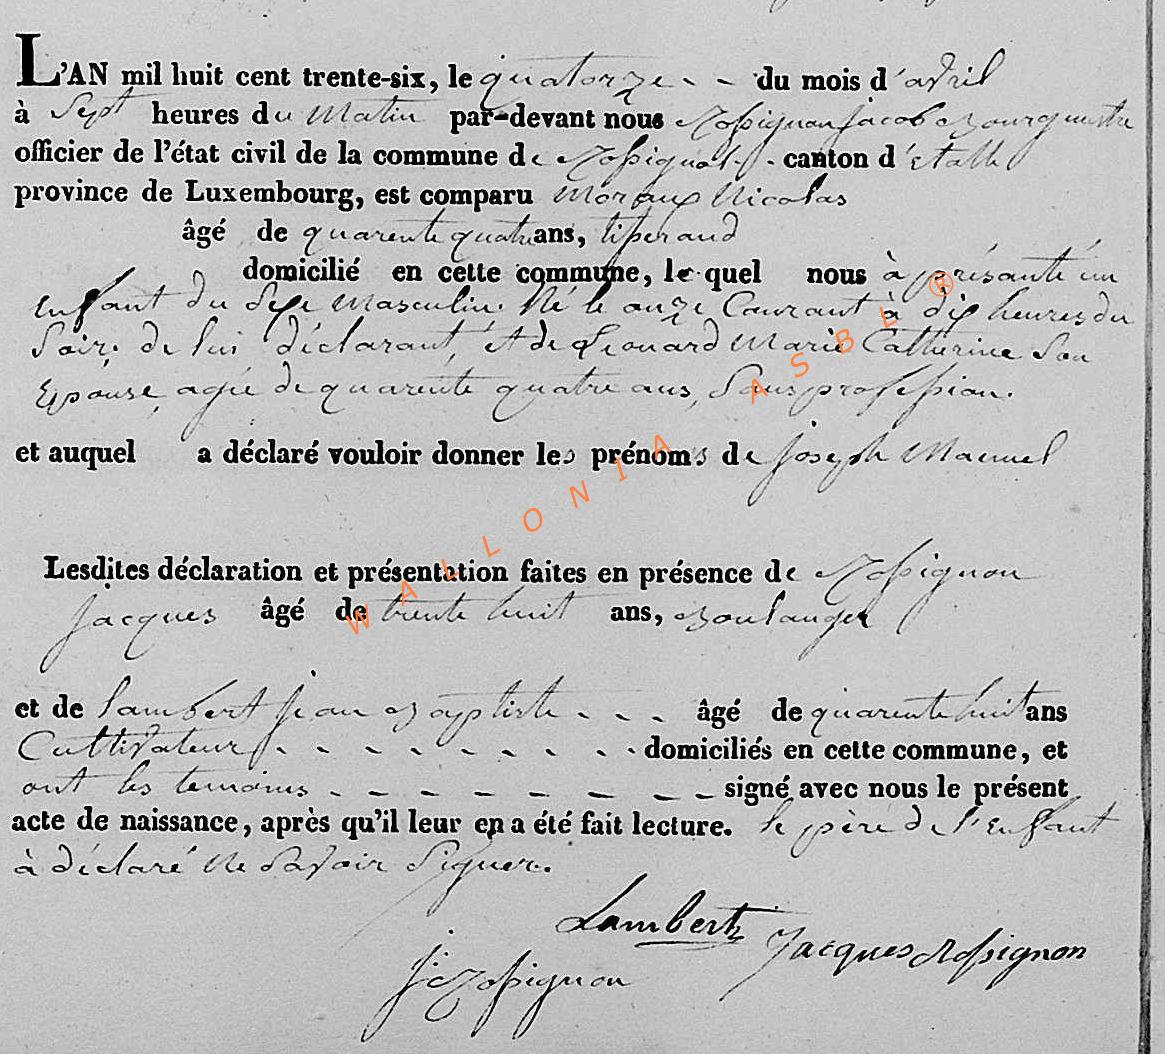 L'AN mil huit cent trente-six, le quatorze - - du mois d'avril
à Sept heures du Matin par-devant nous Rossignon Jacob Bourgmestre
officier de l'état civil de la commune de Rossignol - canton d'étalle
province de Luxembourg, est comparu Moraux Nicolas
âgé de quarente quatre ans, tisserand
domicilié en cette commune, lequel nous à présanté un
Enfant du Sexe Masculin. Né le onze Courant à dix heures du
Soir. de lui déclarant, et de Leonard Marie Catherine Son
Epouse, agée de quarente quatre ans, Sans profession.
et auquel a déclaré vouloir donner les prénoms de Joseph Manuel
Lesdites déclaration et présentation faites en présence de Rossignon
Jacques âgé de trente huit ans, Boulanger
et de Lambert Jean Baptiste - - - âgé de quarente huit ans
Cultivateur - - - - - - - - - domiciliés en cette commune, et
ont les temoins - - - - - - - signé avec nous le présent
acte de naissance, après qu'il leur en a été fait lecture. le père de l'Enfant
à déclaré Ne Savoir Signer.
Lambert
Jacques Rossignon
J Rossignon
WALLONIA ASBL ®